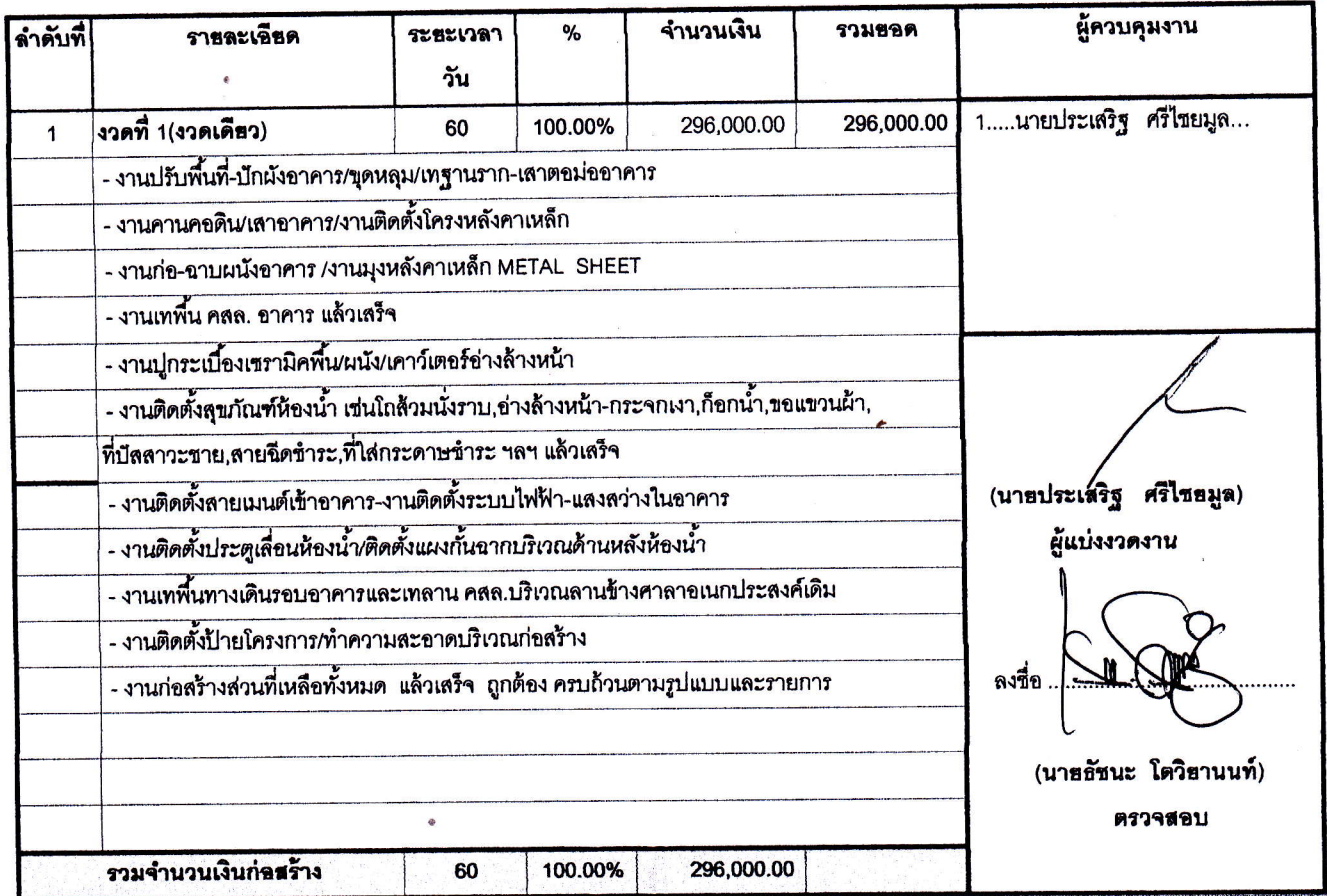 ลำดับที่ รายละเอียด ระยะเวลา % จำนวนเงิน รวมยอด ผู้ควบคุมงาน
วัน
1 งวดที่ 1(งวดเดียว) 60 100.00% 296,000.00 296,000.00 1.....นายประเสริฐ ศรีไชยมูล...
- งานปรับพื้นที่-ปักผังอาคาร/ขุดหลุม/เทฐานราก-เสาตอม่ออาคาร
- งานคานคอดิน/เสาอาคาร/งานติดตั้งโครงหลังคาเหล็ก
- งานก่อ-ฉาบผนังอาคาร /งานมุงหลังคาเหล็ก METAL SHEET
- งานเทพื้น คสล. อาคาร แล้วเสร็จ
- งานปูกระเบื้องเซรามิคพื้น/ผนัง/เคาว์เตอร์อ่างล้างหน้า
- งานติดตั้งสุขภัณฑ์ห้องน้ำ เช่นโถส้วมนั่งราบ,อ่างล้างหน้า-กระจกเงา,ก็อกน้ำ,ขอแขวนผ้า,
ที่ปัสสาวะชาย,สายฉีดชำระ,ที่ใส่กระดาษชำระ ฯลฯ แล้วเสร็จ
- งานติดตั้งสายเมนต์เข้าอาคาร-งานติดตั้งระบบไฟฟ้า-แสงสว่างในอาคาร
- งานติดตั้งประตูเลื่อนห้องน้ำ/ติดตั้งแผงกั้นฉากบริเวณด้านหลังห้องน้ำ
- งานเทพื้นทางเดินรอบอาคารและเทลาน คสล.บริเวณลานข้างศาลาอเนกประสงค์เดิม
- งานติดตั้งป้ายโครงการ/ทำความสะอาดบริเวณก่อสร้าง
- งานก่อสร้างส่วนที่เหลือทั้งหมด แล้วเสร็จ ถูกต้อง ครบถ้วนตามรูปแบบและรายการ
รวมจำนวนเงินก่อสร้าง 60 100.00% 296,000.00
(นายประเสริฐ ศรีไชยมูล)
ผู้แบ่งงวดงาน
ลงชื่อ
(นายธัชนะ โตวิยานนท์)
ตรวจสอบ